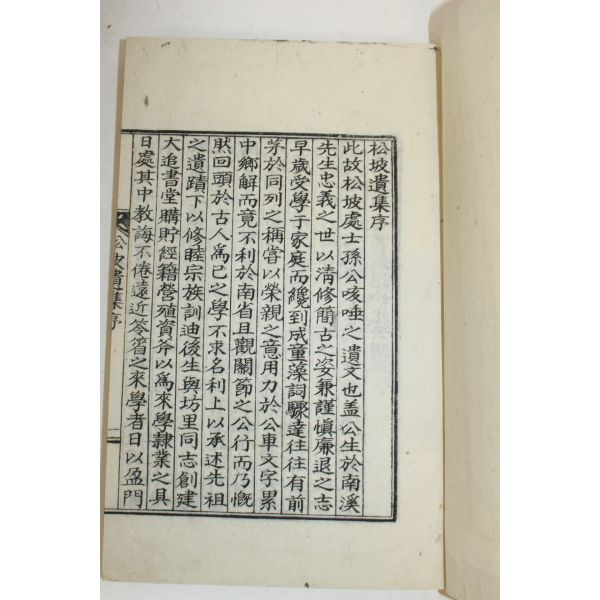 松坡遺集序
此故松坡處士孫公咳唾之遺文也盖公生於南溪
先生忠義之世以清修簡古之姿兼謹慎廉退之志
早歲受學于家庭而纔到成童藻詞驟達往往有前
茅於同列之稱嘗以榮親之意用力於公車文字累
中鄉解而竟不利於南省且觀關節之公行而乃慨
然回頭於古人爲己之學不求名利上以承述先祖
之遺蹟下以修睦宗族訓迪後生與坊里同志創建
大追書堂購貯經籍營殖資斧以爲來學隷業之具
日處其中教誨不倦遠近笭箵之來學者日以盈門
松坡遺集序
一